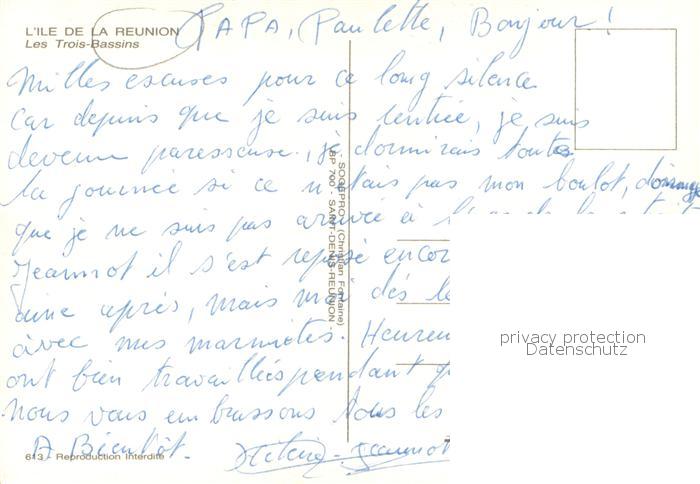 L'ILE DE LA REUNION
Les Trois-Bassins
PAPA, Paulette, Bonjour !
Milles excuses pour ce long silence
Car depuis que je suis rentrée, je suis
devenue paresseuse, je dormirais toute
la journée si ce n'étais pas mon boulot, dommage
que je ne suis pas arrivée à
Jeannot il s'est reposé encor
aine après, mais moi dés le
avec mes marmites. Heureu
ont bien travaillés pendant q
Nous vous embrassons tous les
A Bientôt. Jeannot
613 - Reproduction interdite
- SOGEPROM (Christian Fontaine)
BP 700 - SAINT-DENIS-REUNION -
privacy protection
Datenschutz